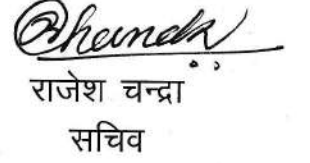 राजेश चन्द्रा
सचिव